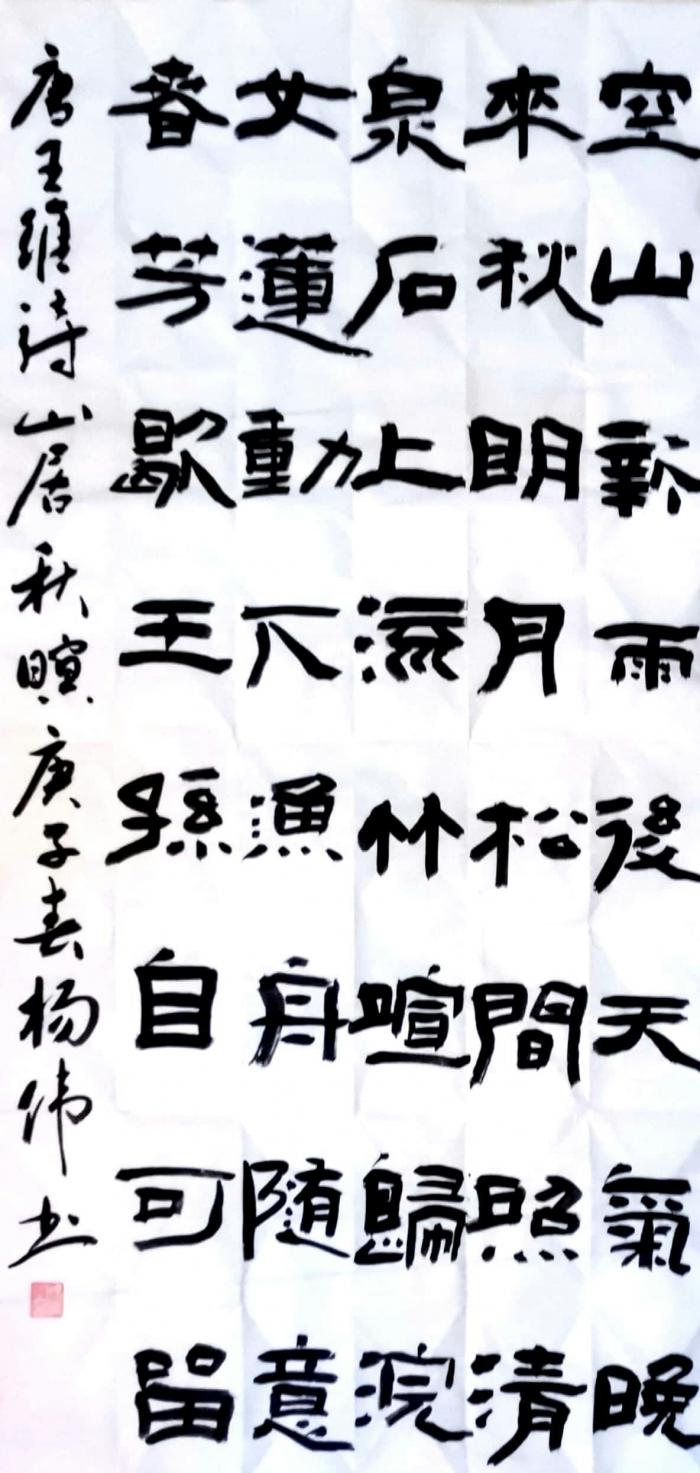 空山新雨後天氣晚
來秋明月松間照清
泉石上流竹喧歸浣
女蓮動下漁舟随意
春芳歇王孫自可留
唐王維詩山居秋暝庚子春杨伟书